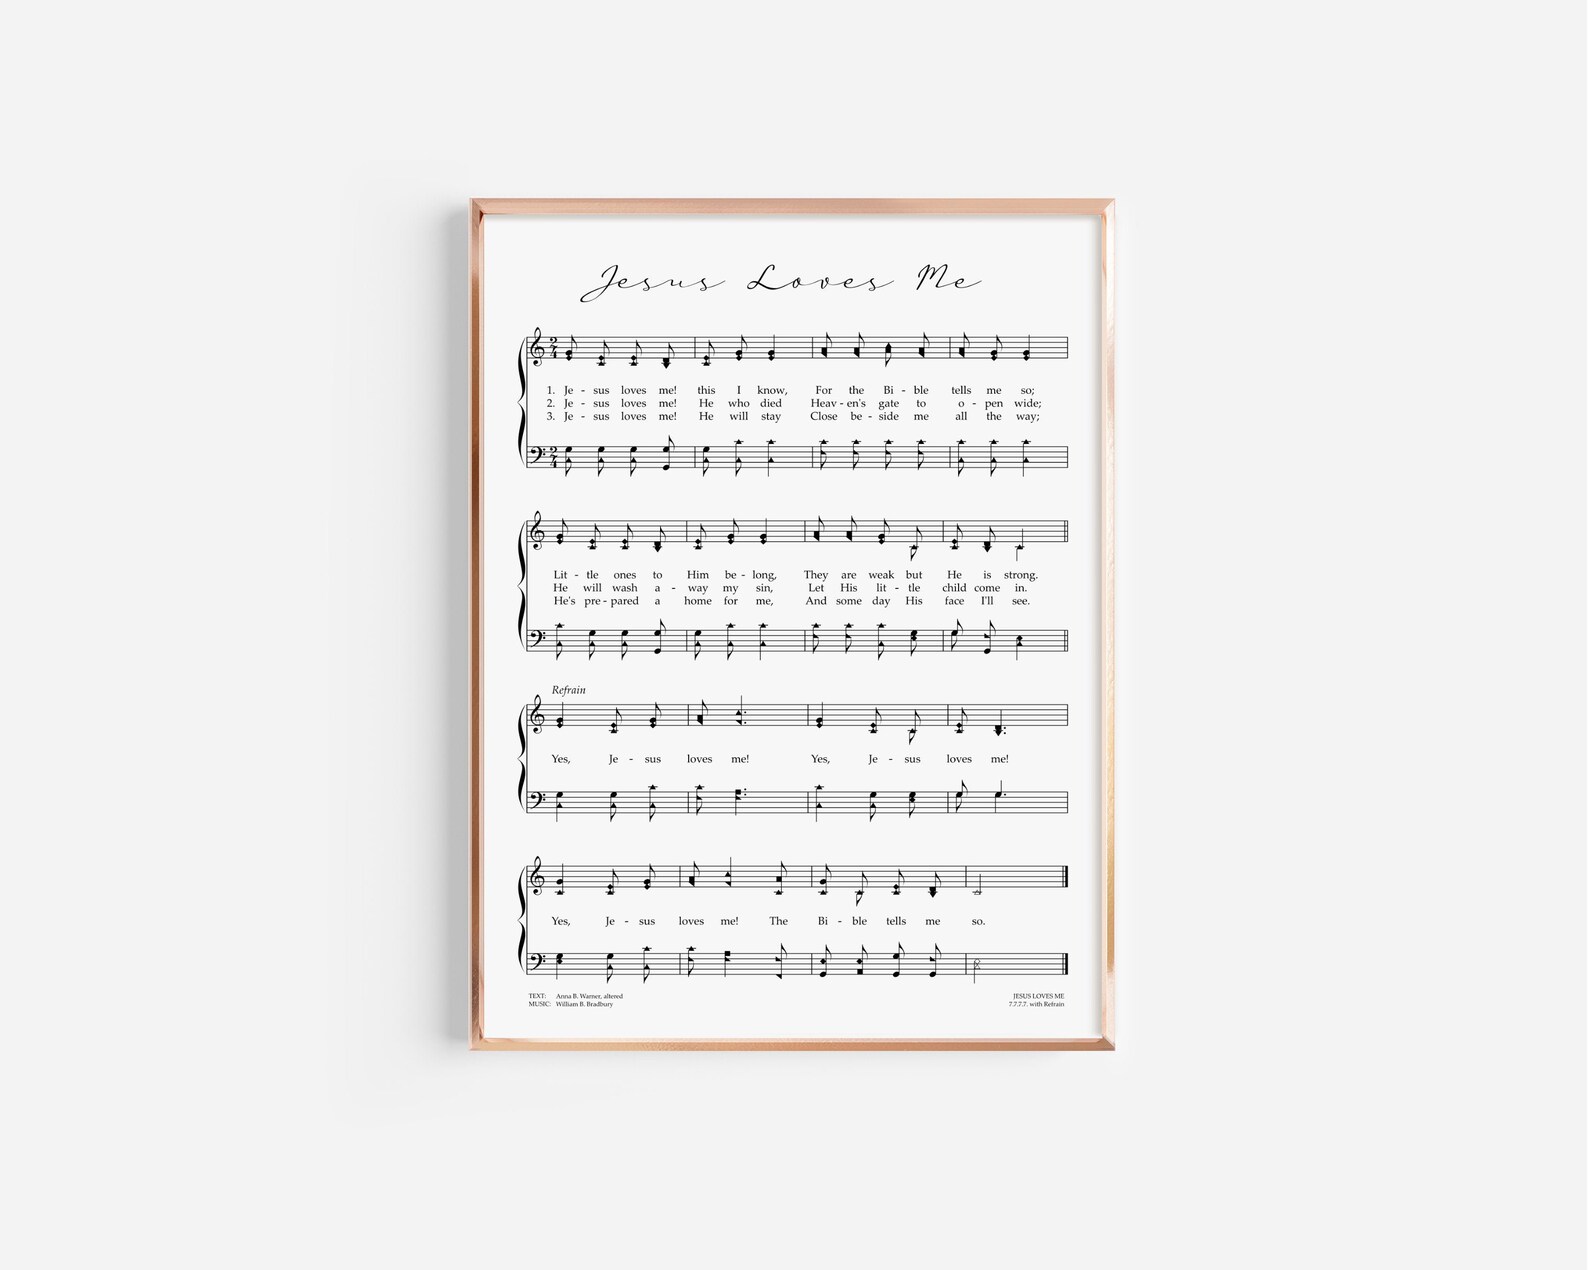 Jesus Loves Me
2 4
1. Je - sus loves me! this I know, For the Bi - ble tells me so;
2. Je - sus loves me! He who died Heav - en's gate to o - pen wide;
3. Je - sus loves me! He will stay Close be - side me all the way;
2 4
Lit - tle ones to Him be - long, They are weak but He is strong.
He will wash a - way my sin, Let His lit - tle child come in.
He's pre - pared a home for me, And some day His face I'll see.
Refrain
Yes, Je - sus loves me! Yes, Je - sus loves me!
Yes, Je - sus loves me! The Bi - ble tells me so.
TEXT: Anna B. Warner, altered
MUSIC: William B. Bradbury
JESUS LOVES ME
7.7.7.7. with Refrain